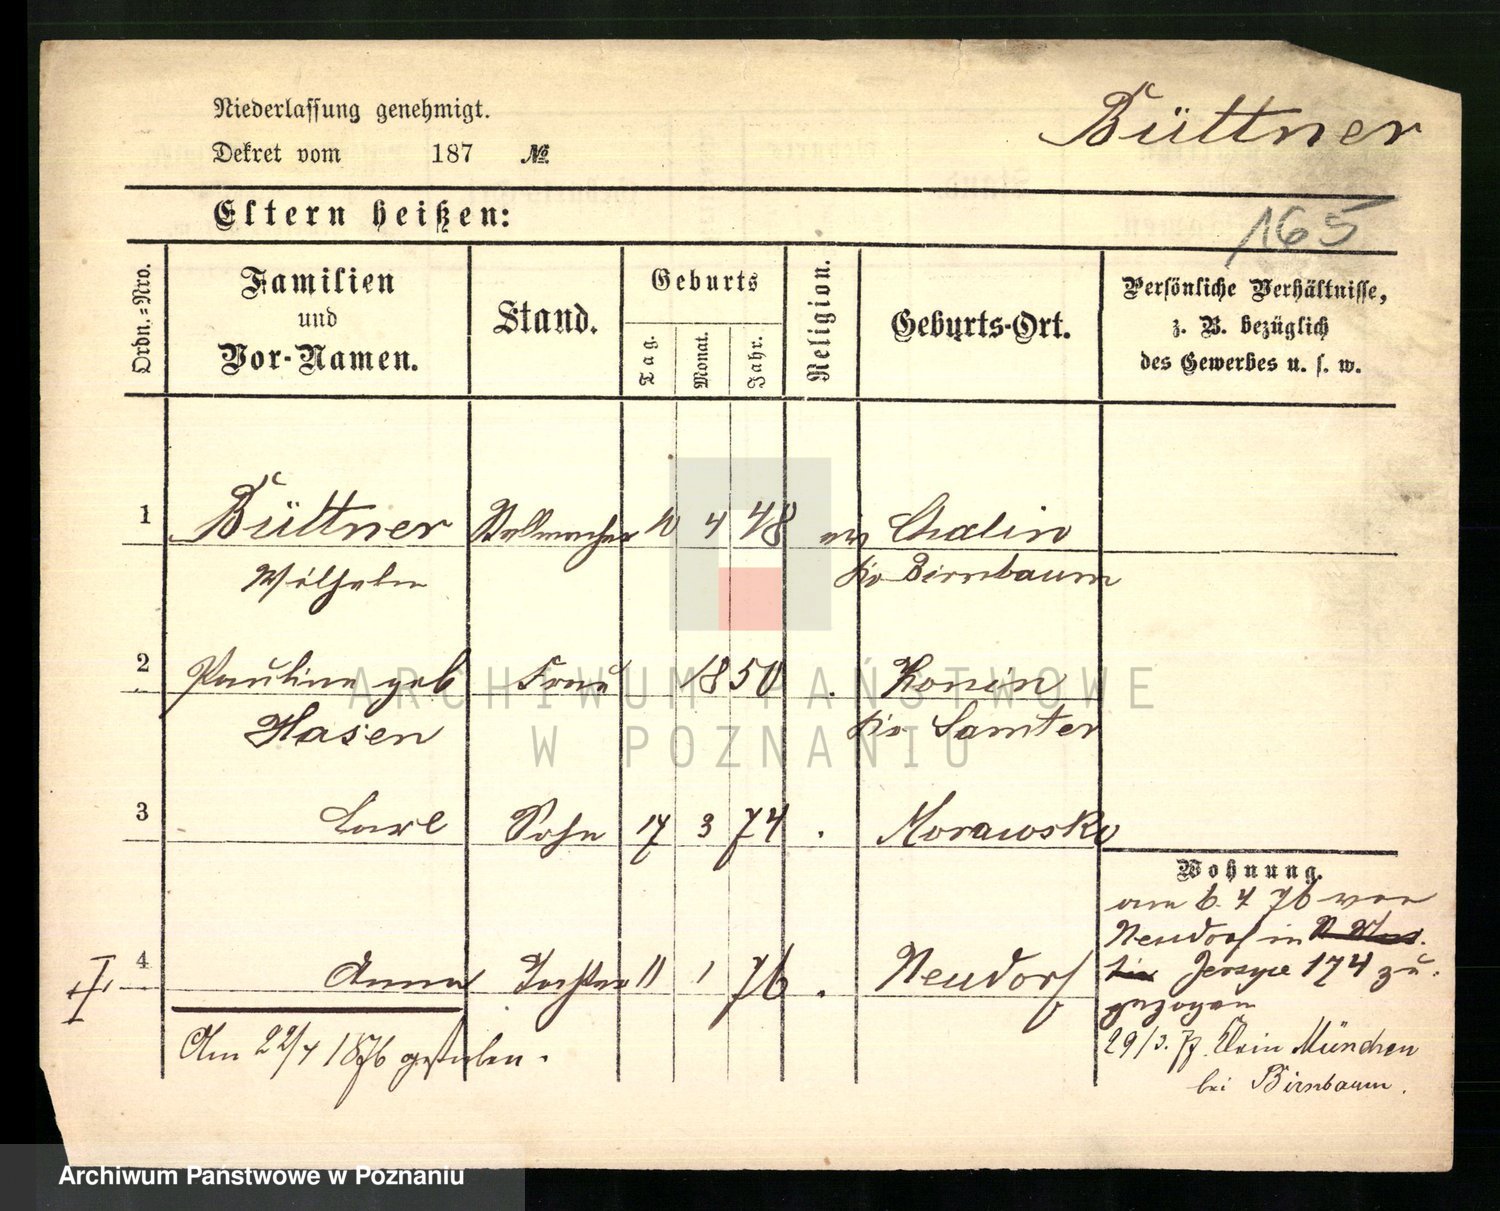 Niederlassung genehmigt.
Dekret vom 187 №
Büttner
Eltern heißen:
165
Ordn.-Nro.
Familien
und
Vor-Namen.
Stand.
Geburts
Tag.
Monat.
Jahr.
Religion.
Geburts-Ort.
Persönliche Verhältnisse,
z. B. bezüglich
des Gewerbes u. s. w.
1 Büttner Stellmacher 10 4 48 ev Chalin
Wilhelm Kr Birnbaum
2 Pauline geb Frau 1850 . Konin
Hasen Kr Samter
3 Carl Sohn 17 3 74 . Morawsko
4 Anna Tochter 11 1 76 . Neudorf
Am 22/4 1876 gestorben.
Wohnung.
am 6 4 76 von
Neudorf in
Jersyce 174 zu-
gezogen
29/3. 77. Klein München
bei Birnbaum.
ARCHIWUM PAŃSTWOWE
W POZNANIU
Archiwum Państwowe w Poznaniu